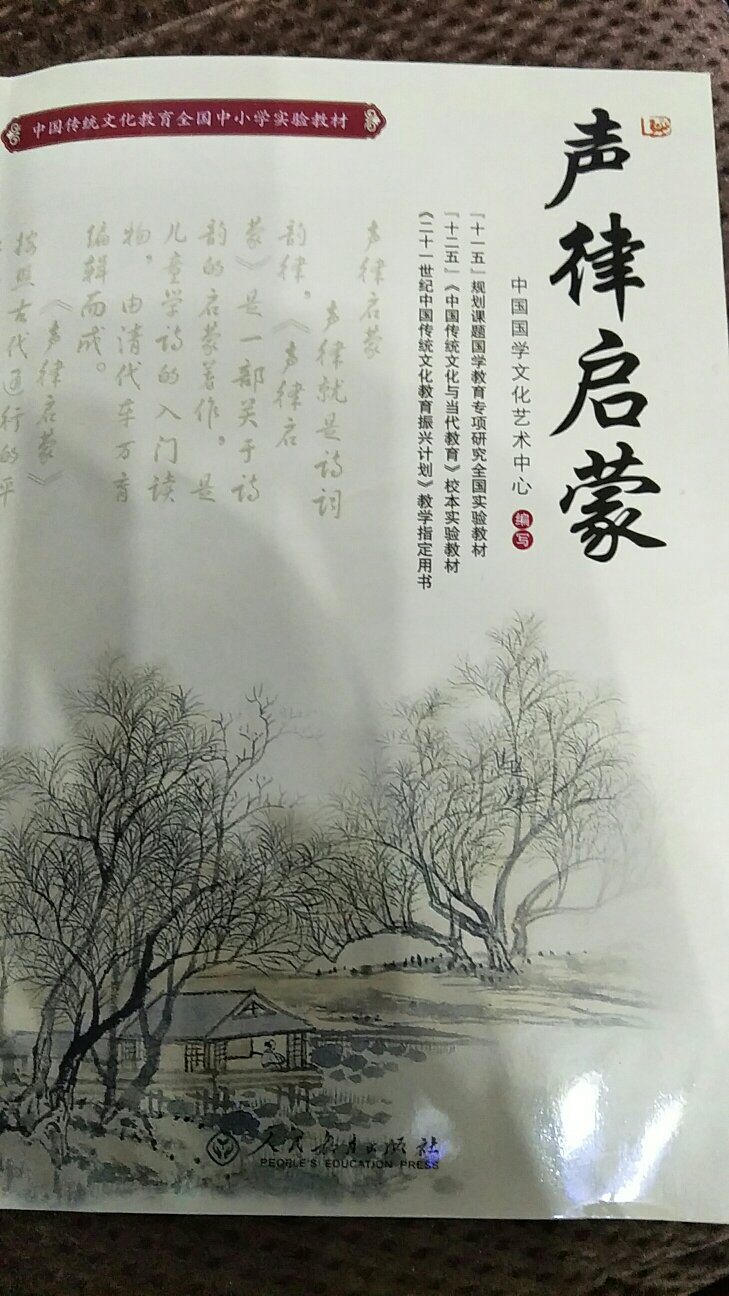 中国传统文化教育全国中小学实验教材
声律启蒙
中国国学文化艺术中心 编写
『十一五』规划课题国学教育专项研究全国实验教材
『十二五』《中国传统文化与当代教育》校本实验教材
《二十一世纪中国传统文化教育振兴计划》教学指定用书
声律启蒙
声律就是诗词
韵律，《声律启
蒙》是一部关于诗
韵的启蒙著作。是
儿童学诗的入门读
物，由清代车万育
编辑而成。
《声律启蒙》
按照古代通行的平
人民教育出版社
PEOPLE'S EDUCATION PRESS